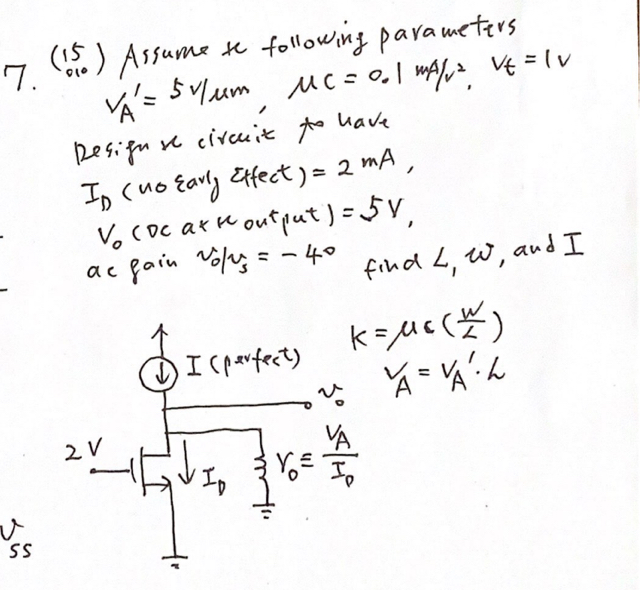 7. (15/010) Assume the following parameters
VA' = 5 V/um, μC = 0.1 mA/V², Vt = 1V
Design the circuit to have
ID (no Early Effect) = 2 mA,
Vo (DC at the output) = 5V,
ac gain vo/vs = -40 find L, W, and I
K = μC (W/L)
VA = VA'·L
I (perfect)
vo
2V
ID
ro ≡ VA/ID
v
ss